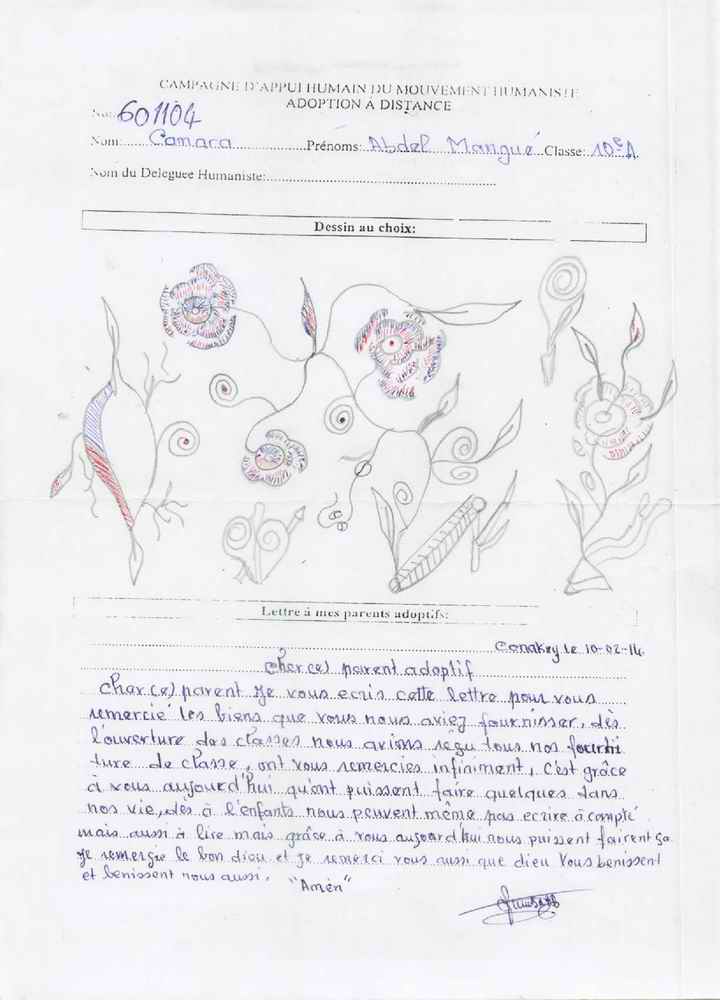 CAMPAGNE D'APPUI HUMAIN DU MOUVEMENT HUMANISTE
ADOPTION A DISTANCE
No: 601104
Nom: Camara Prénoms: Abdel Mangué Classe: 10e A
Nom du Deleguee Humaniste:
Dessin au choix:
Lettre à mes parents adoptifs:
Conakry le 10-02-14
Cher(e) parent adoptif
Cher(e) parent Je vous ecris cette lettre pour vous
remercié les biens que vous nous aviez fournisser, dès
l'ouverture des classes nous avions reçu tous nos fourni
ture de classe, ont vous remercies infiniment, C'est grâce
à vous aujourd'hui qu'ont puissent faire quelques dans
nos vie, dès à l'enfants nous peuvent même pas ecrire à compté
mais aussi à lire mais grâce à vous aujourd'hui nous puissent fairent ça
Je remergie le bon dieu et Je remerci vous aussi que dieu vous benissent
et benissent nous aussi. "Amén"